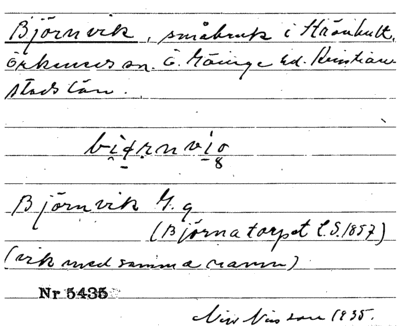 Björnvik, småbruk i Hrånhult,
Örkeneds sn. Ö. Göinge hd. Kristian
stads län.
Björnvik Gg
(Björnatorpet E.S. 1857)
(vik med samma namn)
Nr 5435
1935.